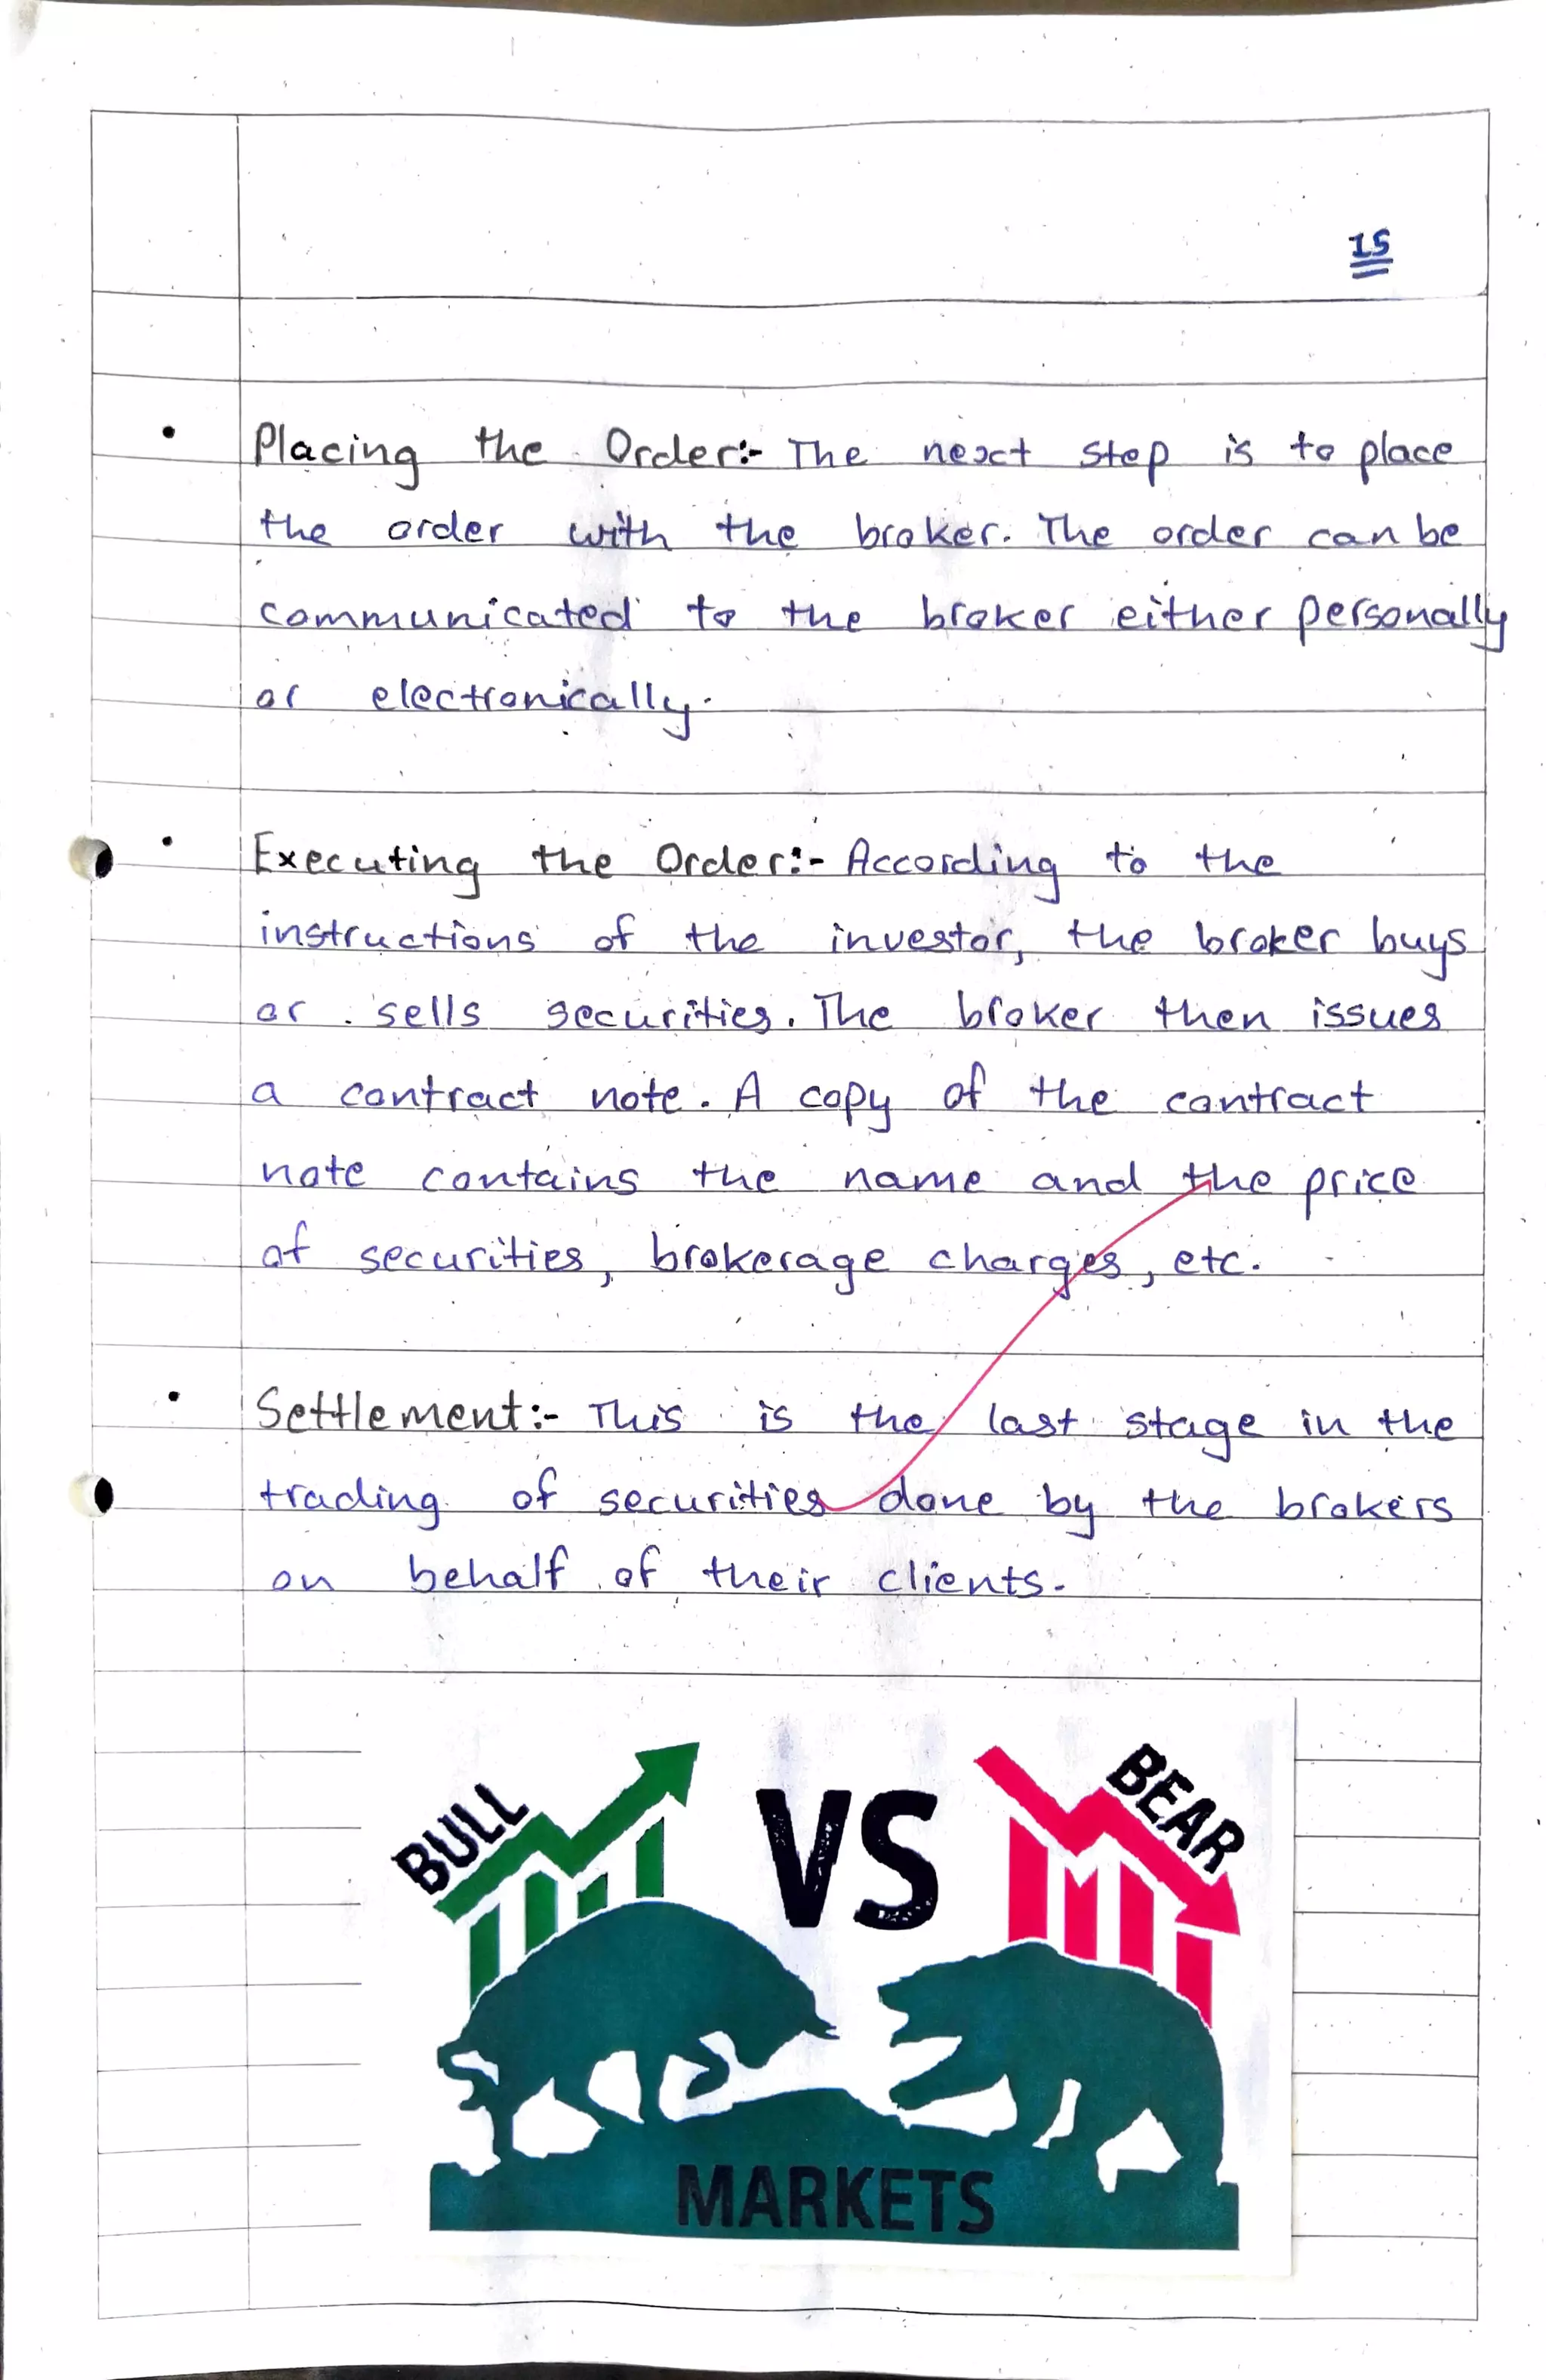 15
• Placing the Order:- The next step is to place
the order with the broker. The order can be
communicated to the broker either personally
or electronically.
• Executing the Order:- According to the
instructions of the investor, the broker buys
or sells securities. The broker then issues
a contract note. A copy of the contract
note contains the name and the price
of securities, brokerage charges, etc.
• Settlement:- This is the last stage in the
trading of securities done by the brokers
on behalf of their clients.
BULL VS BEAR
MARKETS